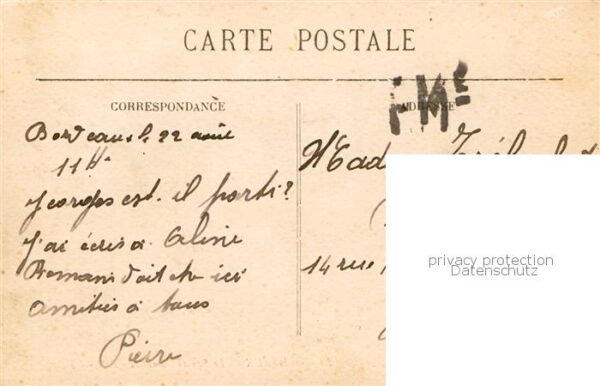 CARTE POSTALE
CORRESPONDANCE
ADRESSE
F.M.
Bordeaux le 22 août
11H
Georges est-il parti?
J'ai écris à Aline
Romans doit être ici
amitiés à tous
Pierre
Mad
14 rue
privacy protection
Datenschutz